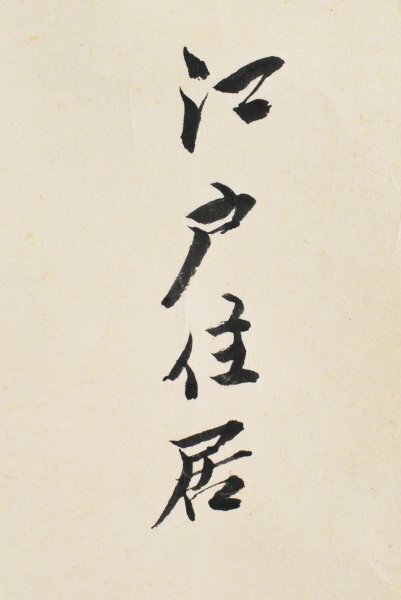 江戸住居